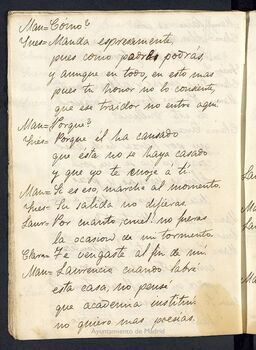 Man= Cómo?
Ynes= Manda espresamente,
pues como padre podrás,
y aunque en todo, en esto mas
pues tu honor no lo consiente,
que ese traidor no entre aquí.
Man= Porque?
Ynes= Porque él ha causado
que ésta no se haya casado
y que yo te enoje á tí.
Man= Si es eso, marche al momento.
Ynes= Su salida no difieras.
Laur= Por cuánto, cruel! no fueras
la ocasion de mi tormento.
Clara= Te vengaste al fin de mí.
Man= Laurencio cuando labré
esta casa, no pensé
que academia instituí
no quiero mas poesias.
Ayuntamiento de Madrid